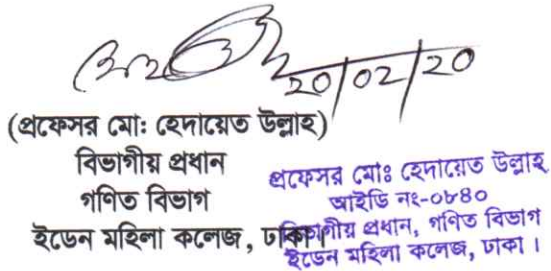 20/02/20
(প্রফেসর মো: হেদায়েত উল্লাহ)
বিভাগীয় প্রধান
গণিত বিভাগ
ইডেন মহিলা কলেজ, ঢাকা।
প্রফেসর মোঃ হেদায়েত উল্লাহ
আইডি নং-০৮৪০
বিভাগীয় প্রধান, গণিত বিভাগ
ইডেন মহিলা কলেজ, ঢাকা ।